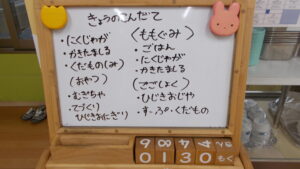 きょうのこんだて
・にくじゃが
・かきたまじる
・くだもの(しみ)
(おやつ)
・むぎちゃ
・てづくり
ひじきおにぎり
(ももぐみ)
・ごはん
・にくじゃが
・かきたまじる
(ごごしょく)
・ひじきおじや
・すーぷ・くだもの
0130もく